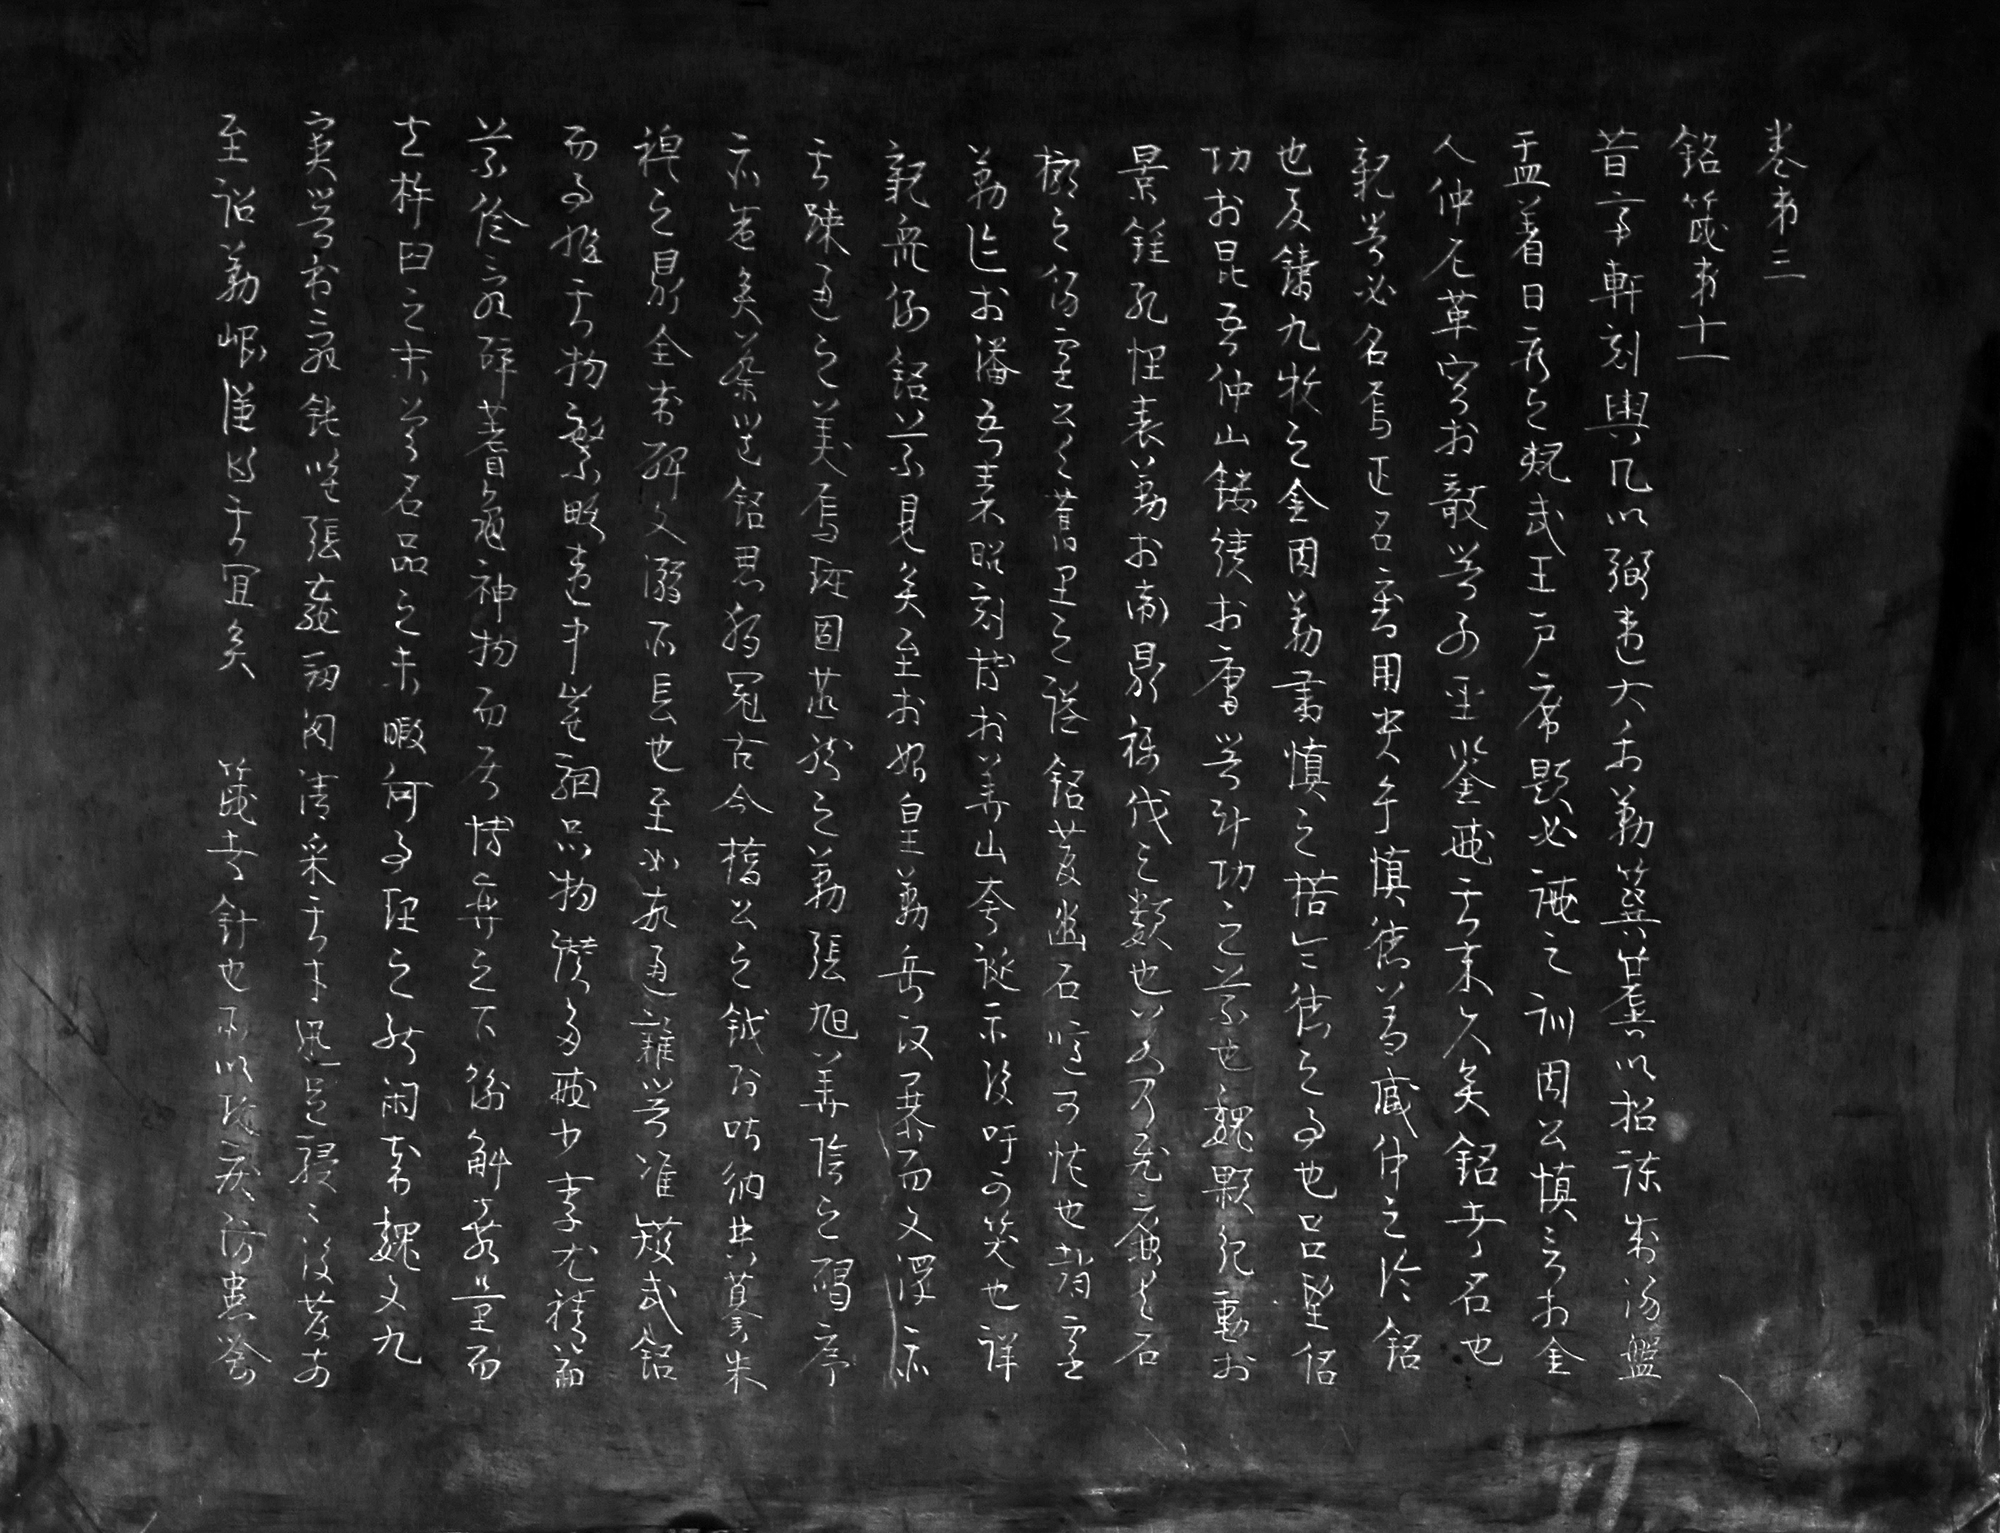 卷第三
銘箴第十一
昔帝軒刻輿几以弼違大禹勒簨簴以招諫成湯盤
盂著日新之規武王戶席題必誡之訓周公慎言於金
人仲尼革容於欹器列聖鑒戒其來久矣銘者名也
親器必名焉正名審用貴乎慎德蓋臧仲之論銘
也夏鑄九牧之金周勒肅慎之楛令德之事也呂望銘
功於昆吾仲山鏤績於庸器計功之義也魏顆紀勳於
景鍾孔悝表勤於衛鼎稱伐之類也若乃飛廉有石
槨之錫靈公有舊里之謚銘發幽石噫可怪也趙靈
勒迹於潘吾秦昭刻博於華山夸誕示後吁可笑也詳
觀衆例銘義見矣至於始皇勒岳政暴而文澤亦
有疎通之美焉班固燕然之勒張旭華陰之碣序
亦盛矣蔡邕銘思獨冠古今橋公之鉞則吐納典謨朱
穆之鼎全成碑文溺所長也至如敬通雜器准矱武銘
而事非其物繁略違中崔駰品物讚多戒少李尤積篇
義儉辭碎蓍龜神物而居博弈之下衡斛嘉量而
在杵臼之末曾名品之未暇何事理之能閑哉魏文九
寶器利辭鈍唯張載劍閣清采其才迅足駸々後發前
至詔勒岷漢得其宜矣　箴者針也所以攻疾防患喻